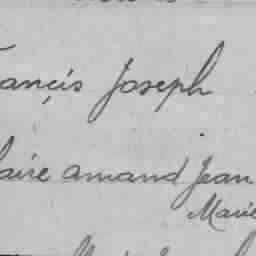 rançis Joseph
aire amand Jean
Marie